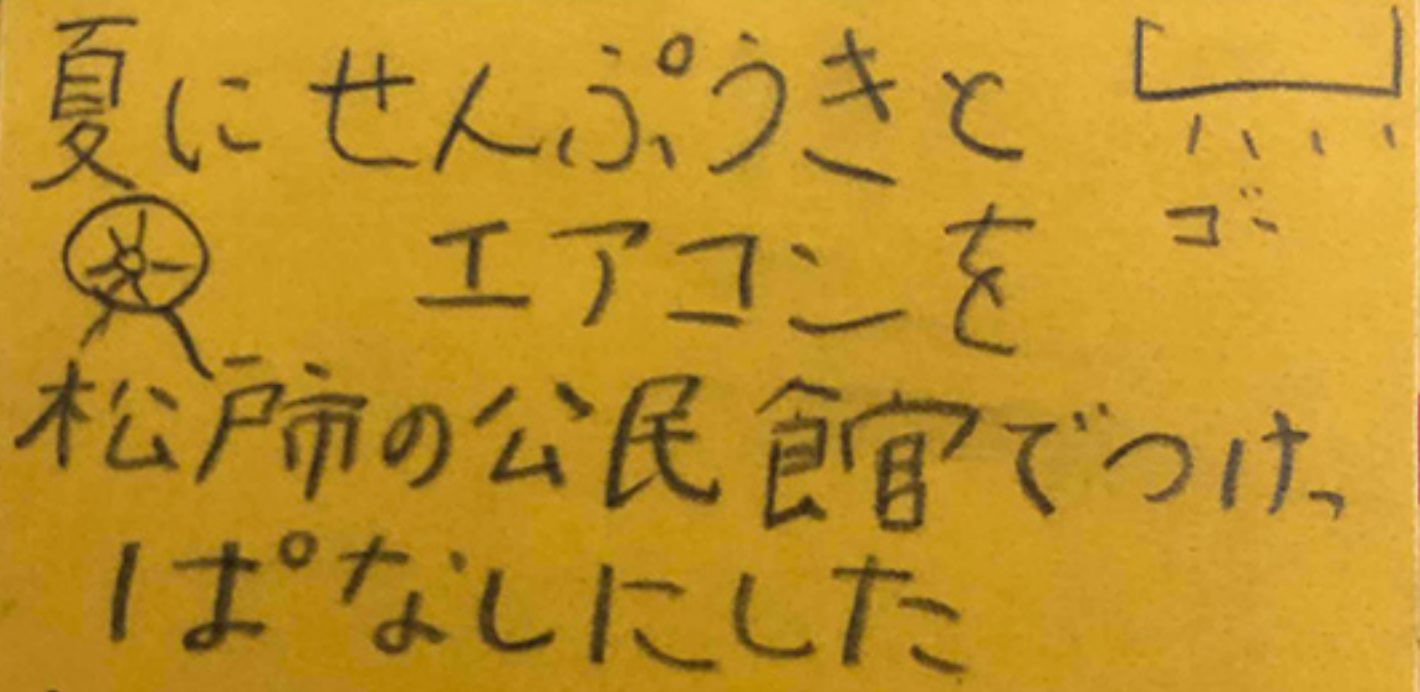 夏にせんぷうきと
ゴー
エアコンを
松戸市の公民館でつけっ
ぱなしにした